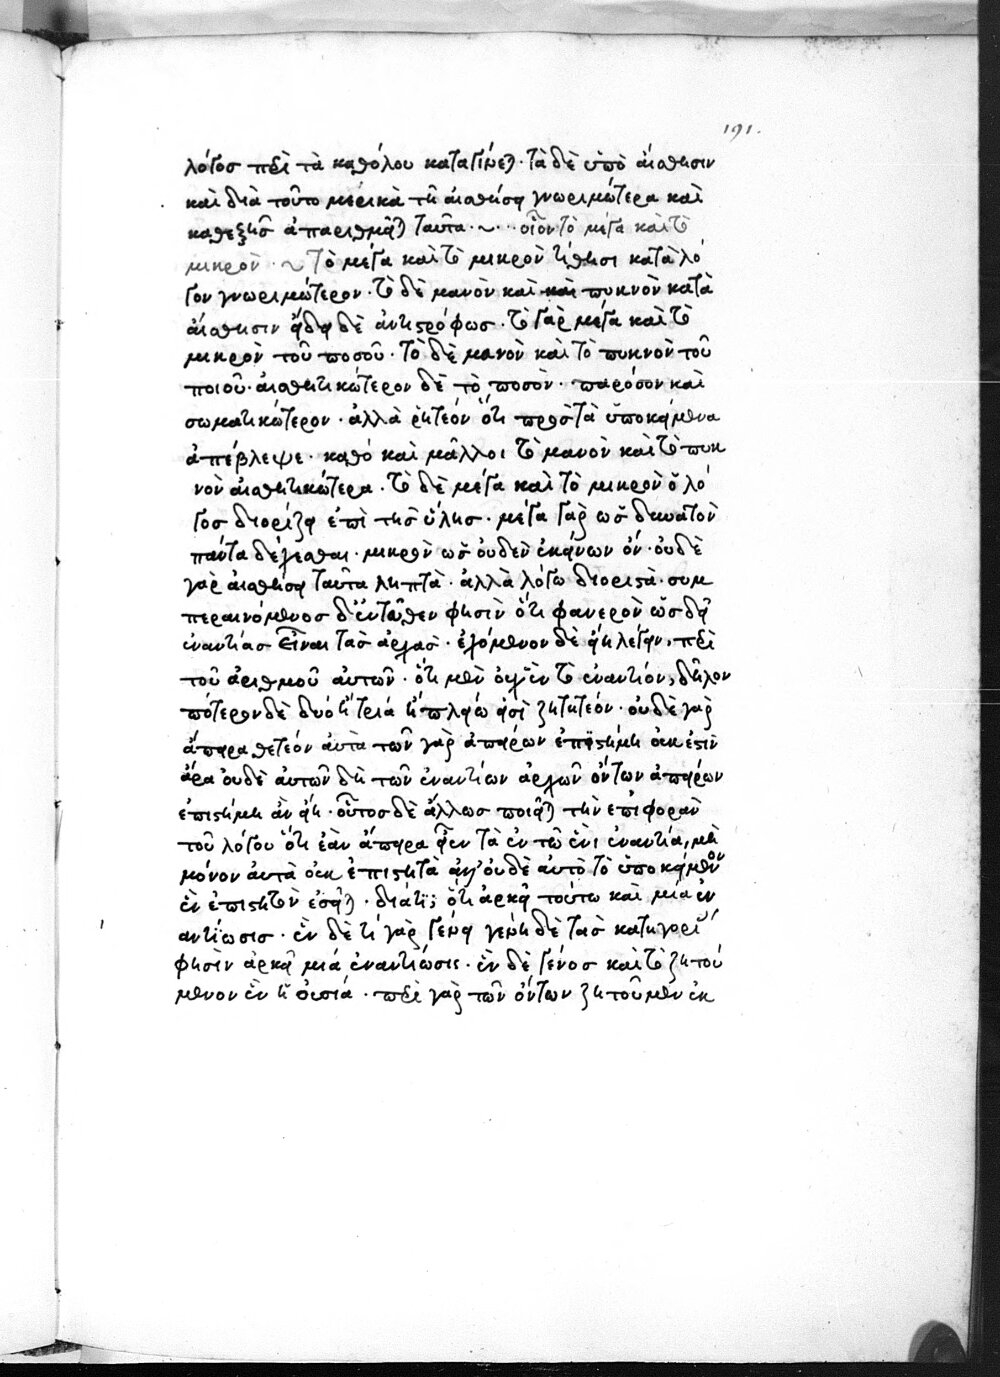 191.
λόγος περὶ τὰ καθόλου καταγίνεται · τὰ δὲ ὑπὸ αἴσθησιν
καὶ διὰ τοῦτο μερικὰ τῆ αἰσθήσει γνωριμώτερα καὶ
καθεξῆς ἀπαριθμεῖται ταῦτα · ~ · οἷον τὸ μέγα καὶ τὸ
μικρὸν · ~ Τὸ μέγα καὶ τὸ μικρὸν τίθησι κατὰ λό
γον γνωριμώτερον · τὸ δὲ μανὸν καὶ καὶ πυκνὸν κατὰ
αἴσθησιν ἔδει δὲ ἀντιστρόφως · τὸ γὰρ μέγα καὶ τὸ
μικρὸν τοῦ ποσοῦ · τὸ δὲ μανὸν καὶ τὸ πυκνὸν τοῦ
ποιοῦ · αἰσθητικώτερον δὲ τὸ ποσὸν · παρόσον καὶ
σωματικώτερον · ἀλλὰ ῥητέον ὅτι πρὸς τὰ ὑποκείμενα
ἀπέβλεψε · καθό καὶ μᾶλλον τὸ μανὸν καὶ τὸ πυκ
νὸν αἰσθητικώτερα · τὸ δὲ μέγα καὶ τὸ μικρὸν ὁ λό
γος διορίζει ἐπὶ τῆς ὕλης · μέγα γὰρ ὡς δυνατὸν
πάντα δέχεσθαι · μικρὸν ὡς οὐδὲν ἐκείνων ὄν · οὐδὲ
γὰρ αἰσθήσει ταῦτα ληπτὰ · ἀλλὰ λόγω διοριστὰ · συμ
περαινόμενος δ' ἐντεῦθεν φησὶν ὅτι φανερὸν ὡς δεῖ
ἐναντίας εἶναι τὰς ἀρχὰς · ἑχόμενον δὲ εἴη λέγειν, περὶ
τοῦ ἀριθμοῦ αὐτῶν · ὅτι μὲν οὐχ ἓν τὸ ἐναντίον, δῆλον
πότερον δὲ δυό ἢ τριά ἢ πλείω ἐστὶ ζητητέον · οὐδὲ γὰρ
ἄπειρα θετέον αὐτὰ τῶν γὰρ ἀπείρων ἐπιστήμη οὐκ ἔστιν
ἄρα οὐδὲ αὐτῶν δὴ τῶν ἐναντίων ἀρχῶν ὄντων ἀπείρων
ἐπιστήμη ἂν εἴη · οὗτος δὲ ἄλλως ποιεῖται τὴν ἐπιφορὰν
τοῦ λόγου ὅτι ἐὰν ἄπειρα εἶεν τὰ ἐν τῶ ἑνὶ ἐναντία, μὴ
μόνον αὐτὰ οὐκ ἐπιστητὰ ἀλλ' οὐδὲ αὐτὸ τὸ ὑποκείμενον
ἓν ἐπιστητὸν ἔσται · διάτι; ὅτι ἀρκεῖ τούτω καὶ μία ἐν
αντίωσις · ἐν δὲ τί γὰρ γένει γένη δὲ τὰς κατηγορί
φησὶν ἀρκεῖ μιά ἐναντίωσις · ἓν δὲ γένος καὶ τὸ ζητού
μενον ἓν ἡ οὐσιά · περὶ γὰρ τῶν ὄντων ζητοῦμεν ἐκ